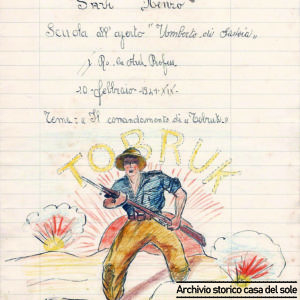 Sari Renzo
Scuola all'aperto "Umberto di Savoia"
20 febbraio 1941-XIX-
Tema: "Il comandamento di "Tobruk"
TOBRUK
Archivio storico casa del sole